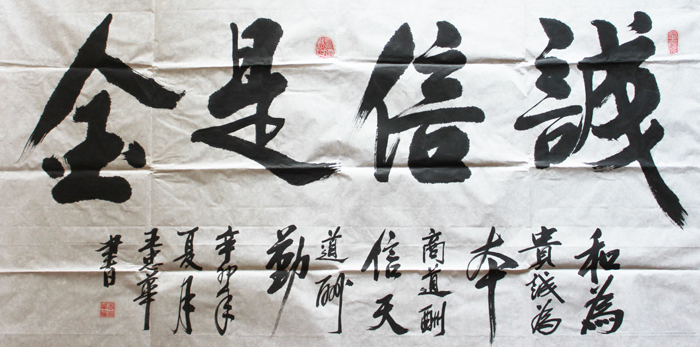 誠信是金
和為
貴誠為
本
商道酬
信天
道酬
勤
辛卯年
夏月
華
書